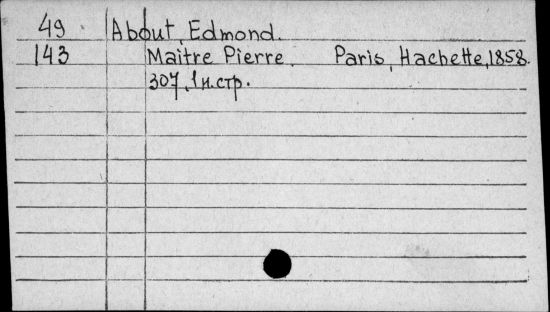 49 About, Edmond.
143 Maître Pierre. Paris, Hachette, 1858.
307, 1 н. стр.